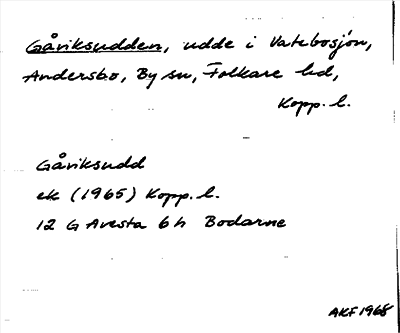 Gåviksudden, udde i Vatebosjön,
Andersbo, By sn, Folkare hd,
Kopp. l.
Gåviksudd
ek (1965) Kopp. l.
12 G Avesta 6 h Bodarne
AKF 1968